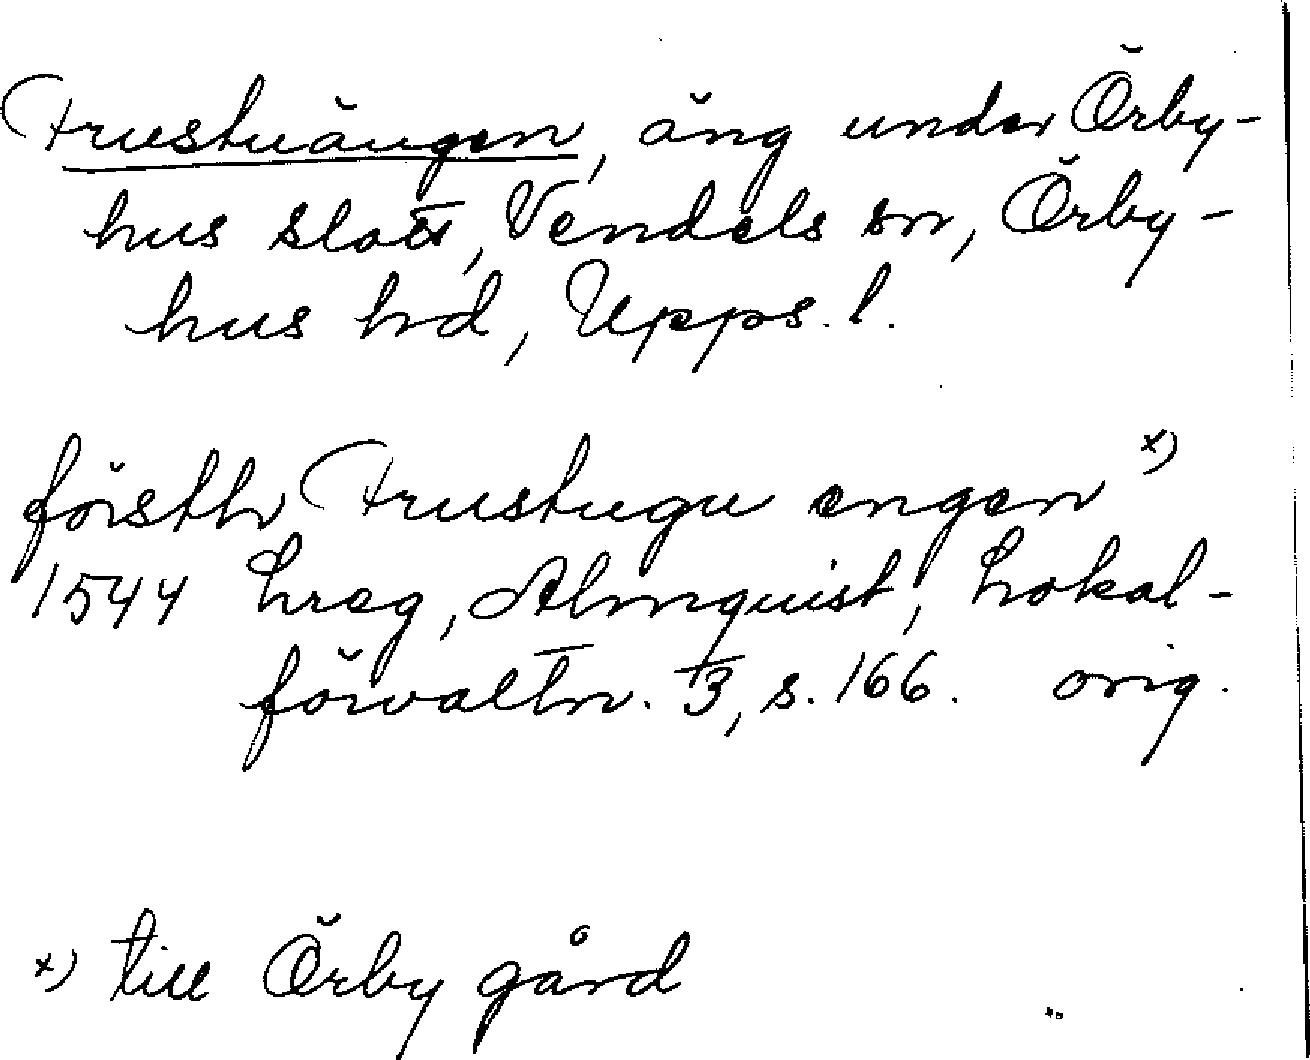 Frustuängen, äng under Örby-
hus slott, Vendels sn, Örby-
hus hd, Upps. l.
försthr Frustugu engen x)
1544 hreg, Almquist, Lokal-
förvaltn. 3, s. 166. orig.
x) till Örby gård